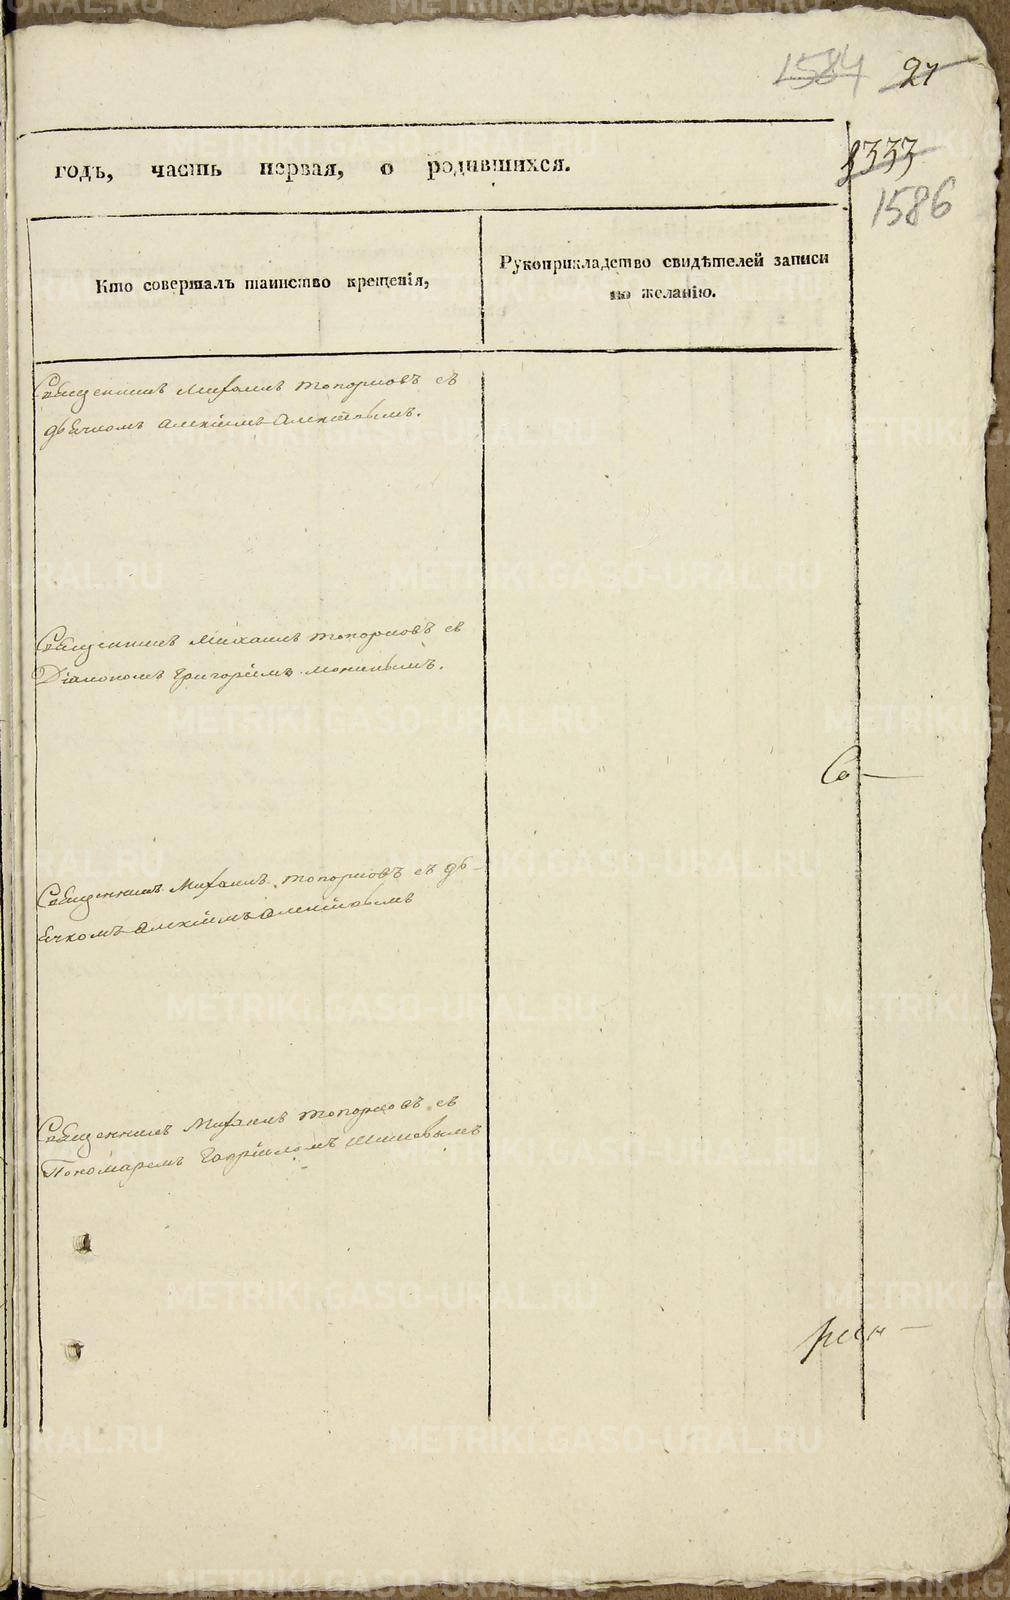 1584 27
годъ, часть первая, о родившихся.
1333
1586
Кто совершалъ таинство крещенія,
Рукоприкладство свидѣтелей записи
по желанію.
Священникъ Михаилъ Топорковъ съ
дьячкомъ Алексіемъ
Священникъ Михаилъ Топорковъ съ
Діакономъ Григоріемъ
Со-
Священникъ Михаилъ Топорковъ съ дь-
ячкомъ Алексіемъ
Священникъ Михаилъ Топорковъ съ
Пономаремъ Гавріиломъ
METRIKI.GASO-URAL.RU